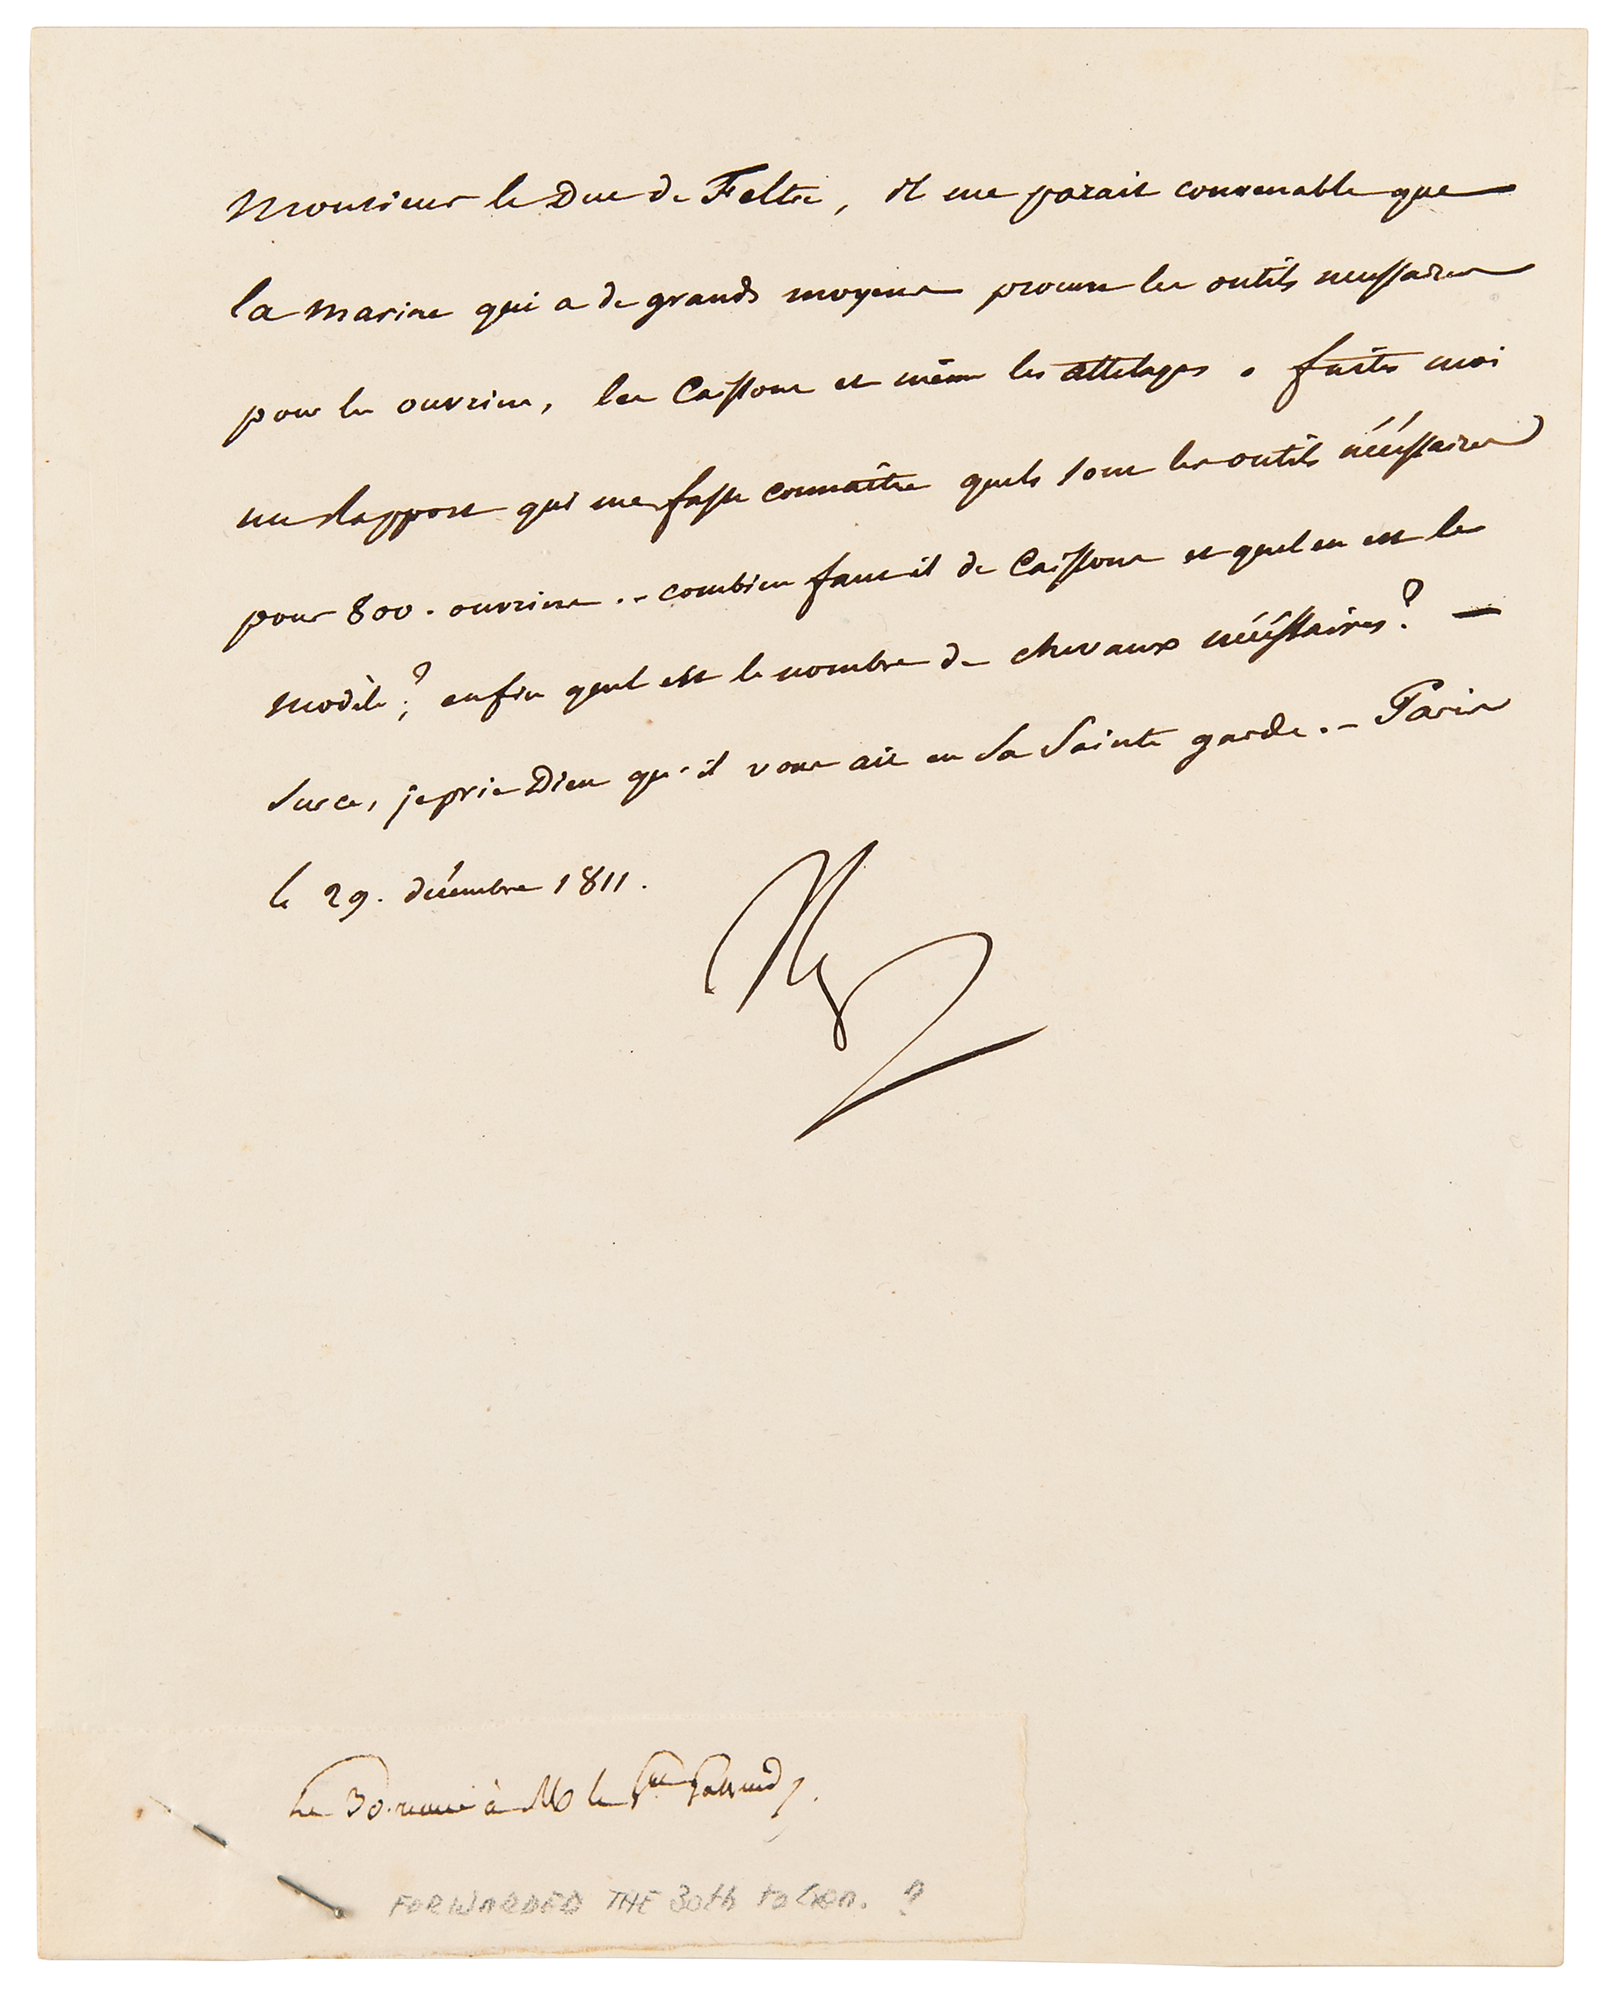 Monsieur le Duc de Feltre, il me parait convenable que
la marine qui a de grands moyens procure les outils necessaires
pour les ouvriers, les Caissons et même les attelages. faites moi
un Rapport qui me fasse connaître quels sont les outils nécéssaires
pour 800. ouvriers .- combien faut il de Caissons et quel en est le
modèle; ? enfin quel est le nombre de chevaux nécéssaires? —
Surce, je prie Dieu qu'il vous ait en Sa Sainte garde .- Paris
le 29. décembre 1811.
Le 30. renvoié à M le
FORWARDED THE 30th to Gen. ?